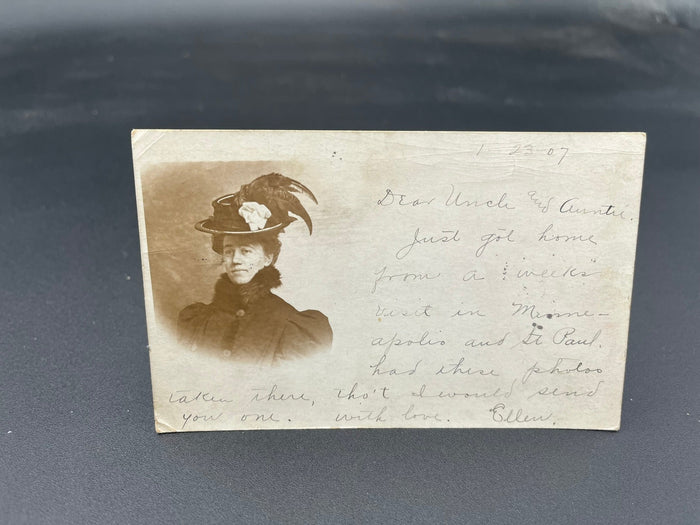 1 23 07
Dear Uncle and Auntie.
Just got home
from a weeks
visit in Minne-
apolis and St Paul.
had these photos
taken there, tho't I would send
you one. with love. Ellen.